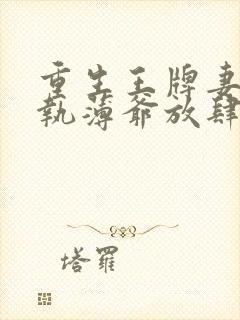 重生王牌妻
執薄爺放肆
塔羅